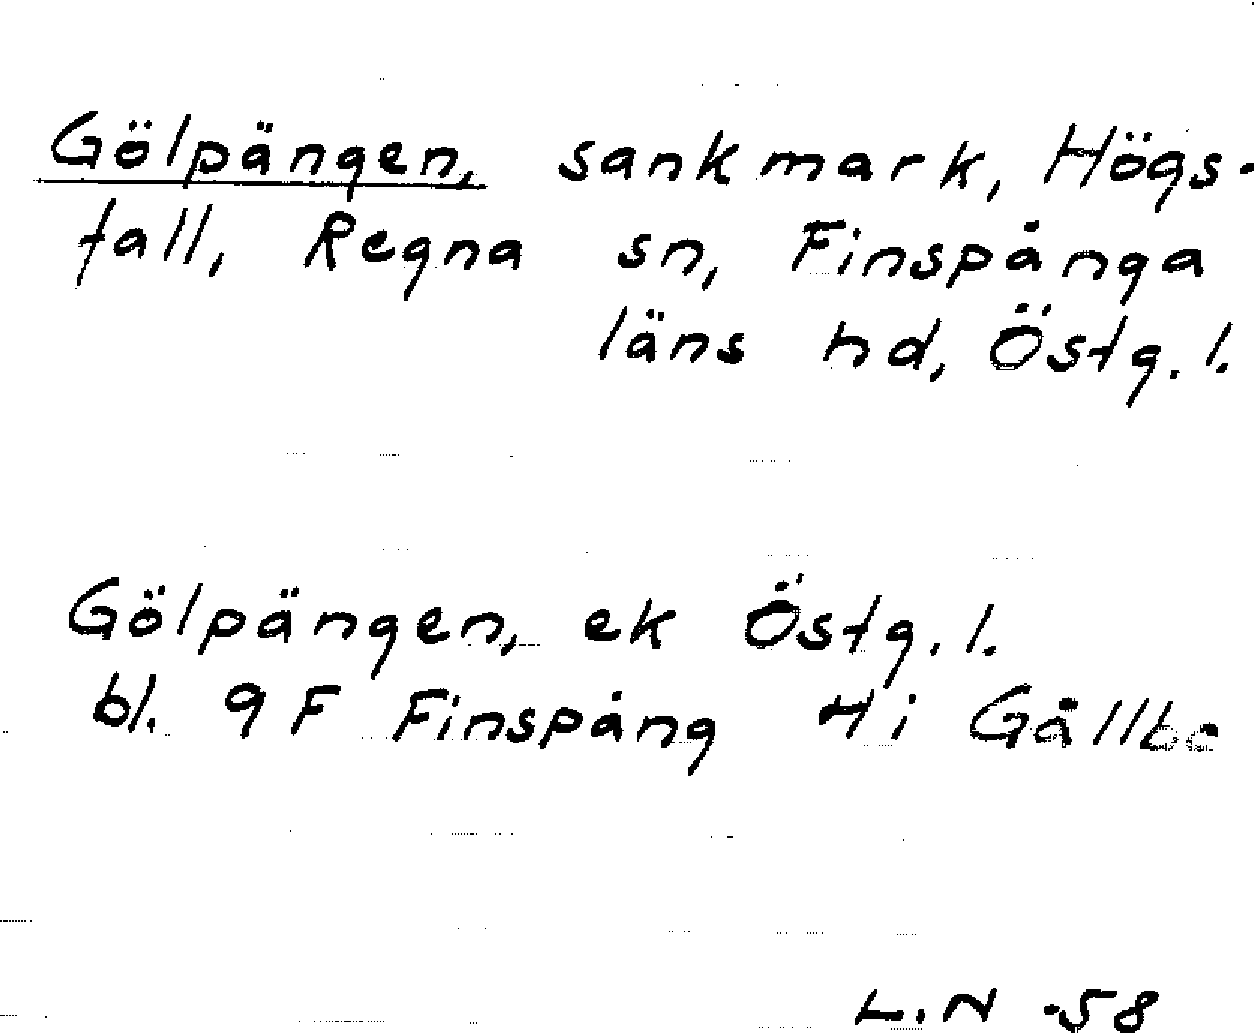 Gölpängen, sankmark, Högs-
fall, Regna sn, Finspånga
läns hd, Östg. l.
Gölpängen, ek Östg. l.
bl. 9 F Finspång 4 i Gållbo
L. N -58